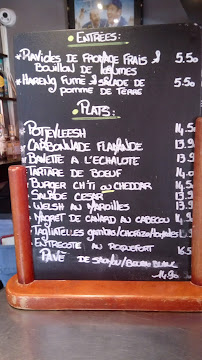 Entrées:
Ravioles de fromage frais
Bouillon de légumes 5.50
Hareng fumé salade de
pomme de terre 5.50
Plats:
Potjevleesh 14.50
Carbonnade Flamande 13.9
Bavette à l'échalote 13.9
Tartare de boeuf
Burger Ch'ti au cheddar
Salade César 13.9
Welsh au Maroilles 13.9
Magret de canard au
Tagliatelles
Entrecote au Roquefort 16.5
Pavé de 14.90